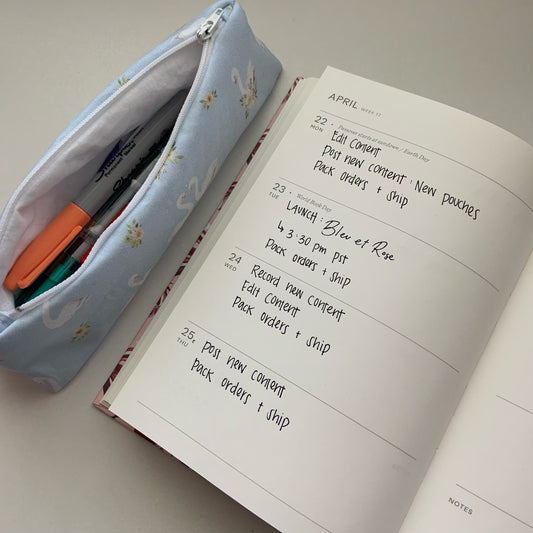 APRIL WEEK 17
22 • Passover starts at sundown / Earth Day
MON
Edit Content
Post new content : New pouches
Pack orders + ship
23 • World Book Day
TUE
LAUNCH : Bleu et Rose
↳ 3:30 pm PST
Pack orders + ship
24
WED
Record new content
Edit Content
Pack orders + ship
25
THU
Post new content
Pack orders + ship
NOTES
Sharpie